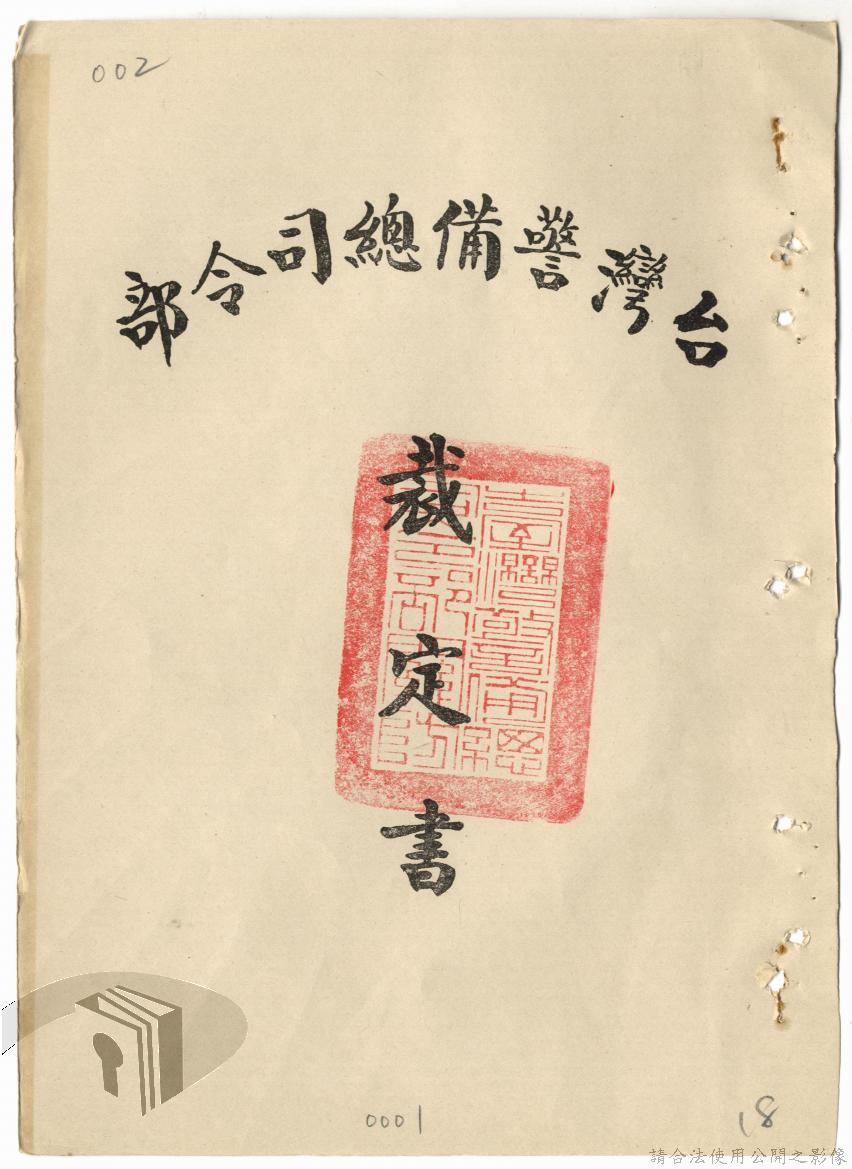 002
台灣警備總司令部
裁定書
臺灣警備總
0001
18
請合法使用公開之影像